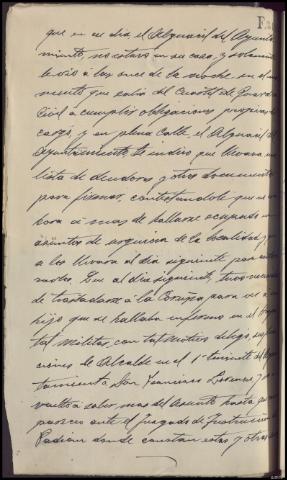 que en su dia, el Alguacil del Ayunta-
miento, no estara en su casa, y solamente
le vio a las once de la noche en el mo-
mento que salia del Cuartel de Guardia
Civil a cumplir obligaciones propias del
cargo, y en plena calle, el Alguacil del
Ayuntamiento le indico que llevara una
lista de deudores y otros documentos
para firmar, contestandole que en
hora si mas de hallarse ocupado en
asuntos de urgencia de la localidad, y que
a los llevara al dia siguiente para
Que al dia siguiente, tuvo necesidad
de trasladarse a la Coruña para ver a su
hijo que se hallaba enfermo en el Hospi-
tal Militar, con tal motivo dejo, en fun-
ciones de Alcalde en el 1º teniente del Ayun-
tamiento Don Francisco y no
vuelto a saber mas del Asunto hasta que
parecer ante el Juzgado de Instruccion de
Padron donde constan estas y otras